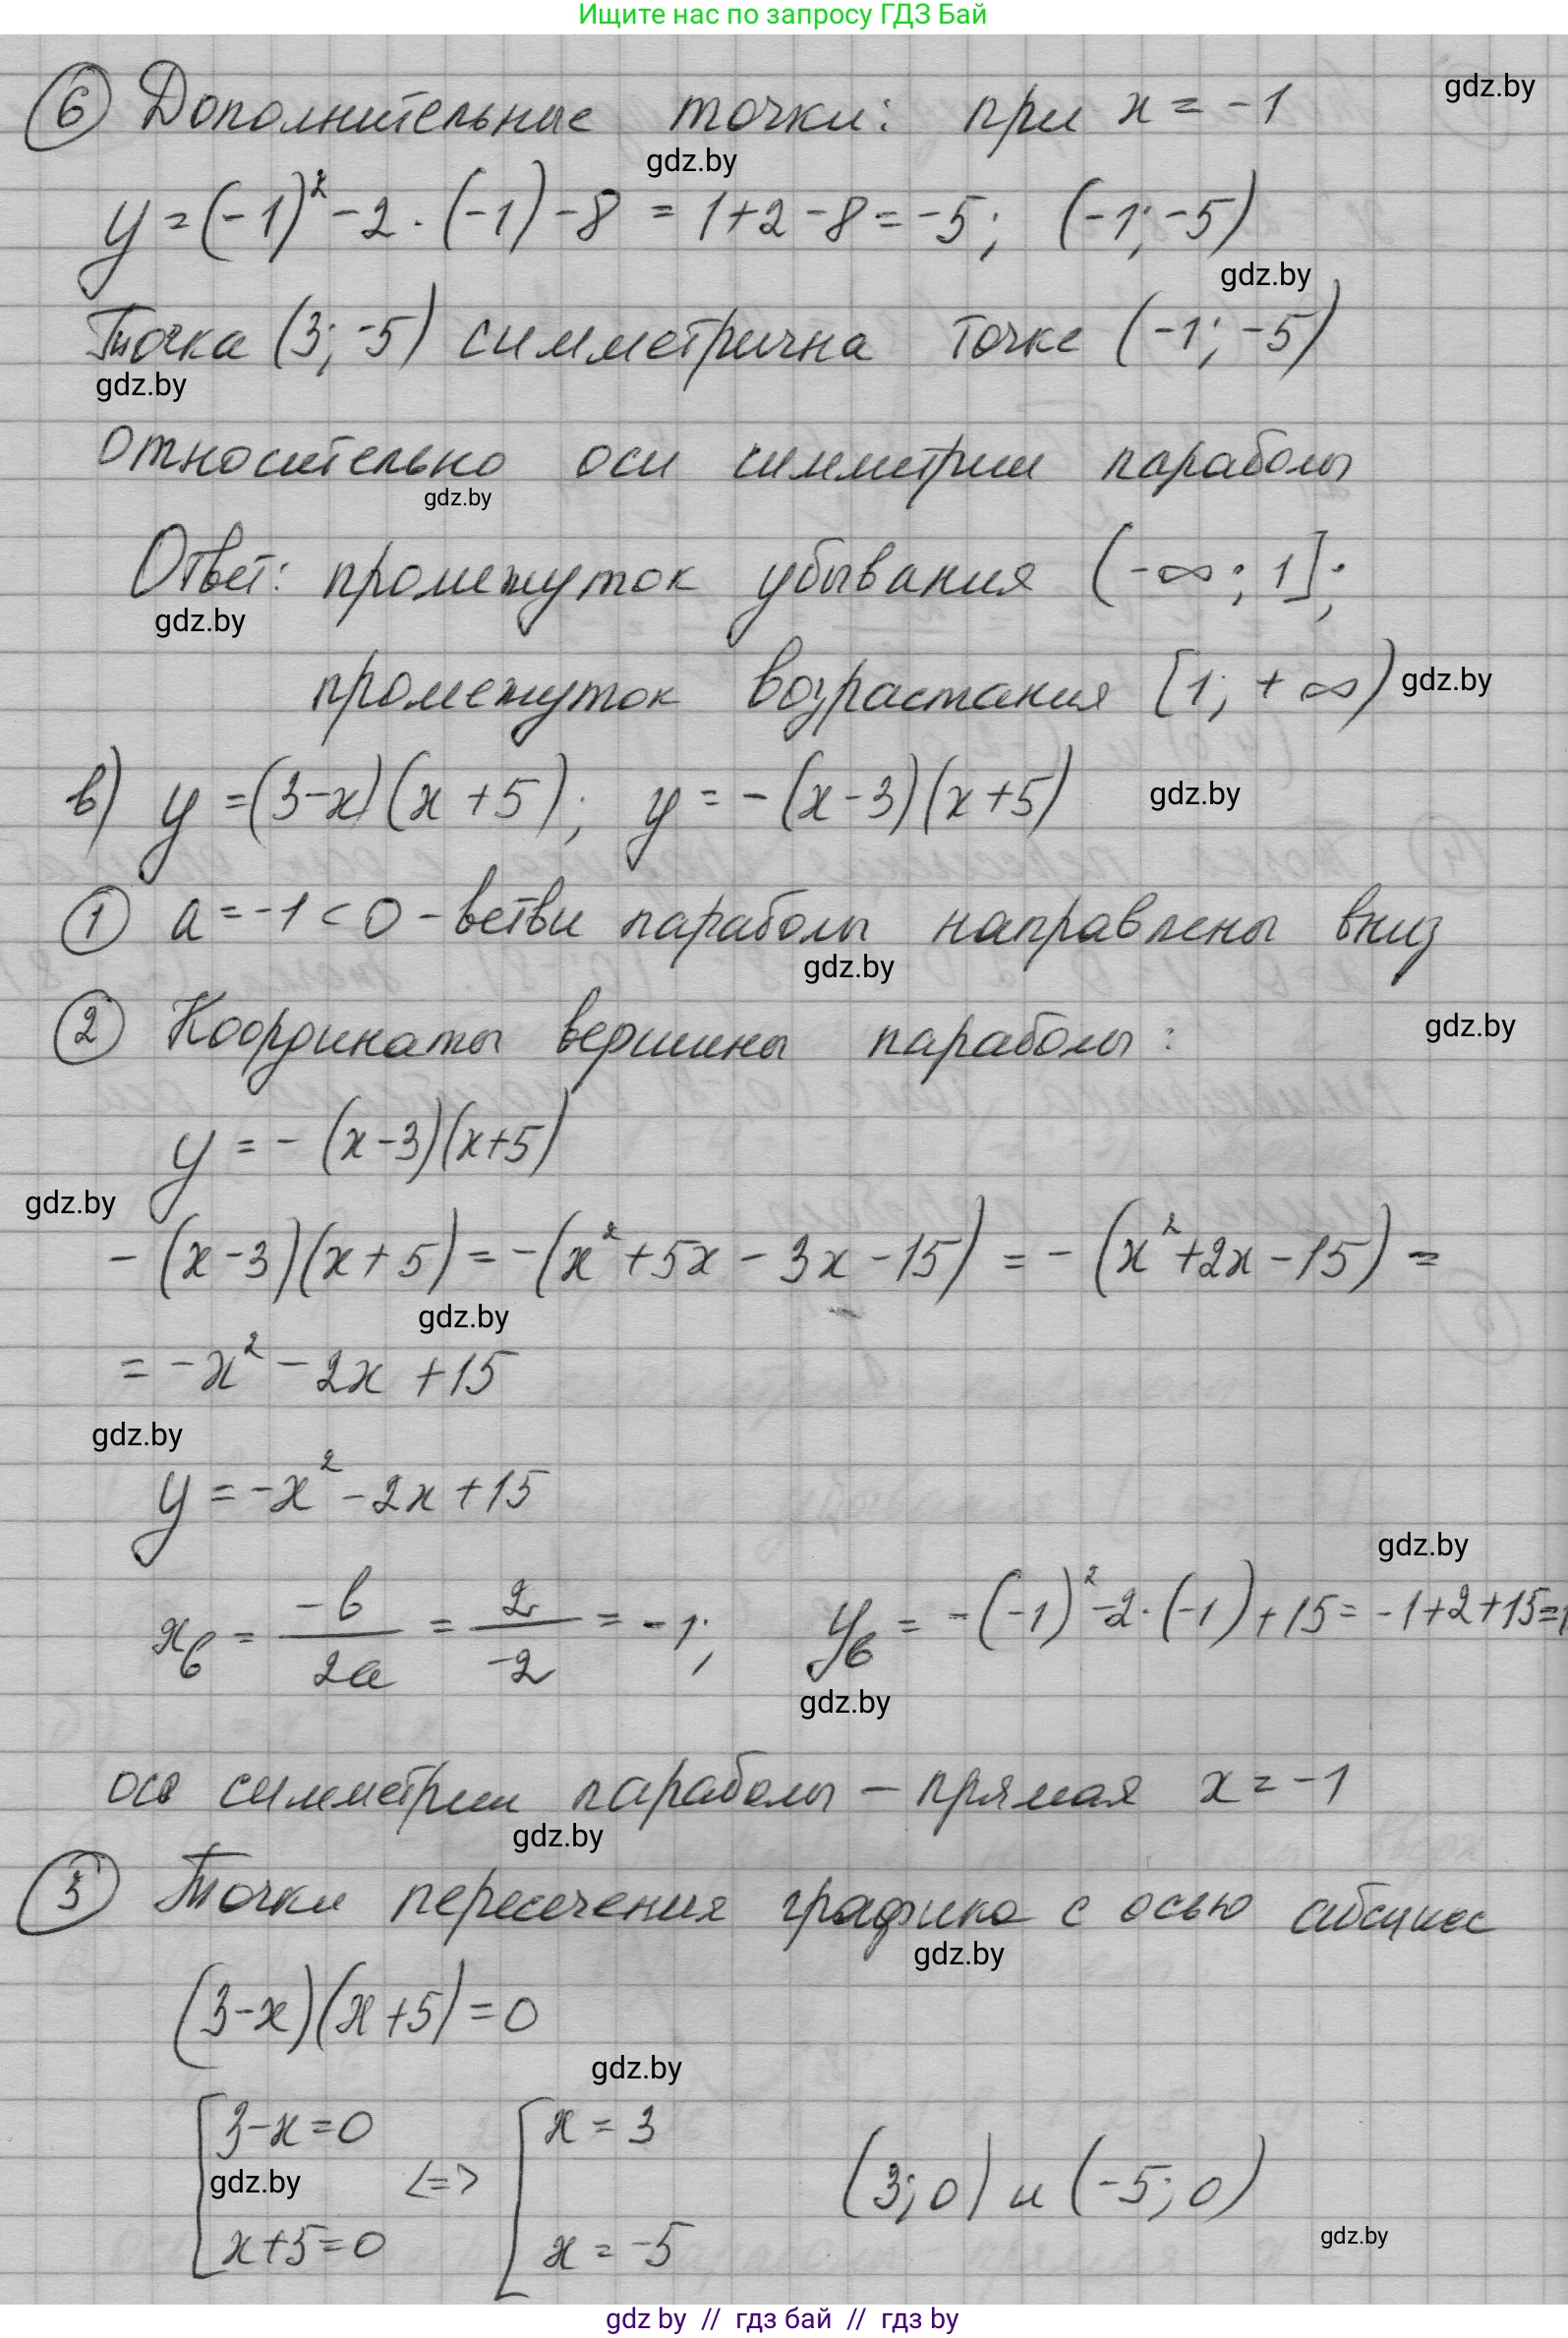 Ищите нас по запросу ГДЗ Бай
⑥ Дополнительные точки: при x = -1
gdz.by
gdz.by
y = (-1)² - 2 · (-1) - 8 = 1 + 2 - 8 = -5; (-1; -5)
gdz.by
Точка (3; -5) симметрична точке (-1; -5)
gdz.by
относительно оси симметрии параболы
gdz.by
Ответ: промежуток убывания (-∞; 1];
gdz.by
промежуток возрастания [1; +∞)
gdz.by
в) y = (3-x)(x+5); y = -(x-3)(x+5)
gdz.by
① a = -1 < 0 - ветви параболы направлены вниз
gdz.by
② Координаты вершины параболы:
gdz.by
y = -(x-3)(x+5)
gdz.by
-(x-3)(x+5) = -(x² + 5x - 3x - 15) = -(x² + 2x - 15) =
gdz.by
= -x² - 2x + 15
gdz.by
y = -x² - 2x + 15
gdz.by
x_в = -b/2a = 2/-2 = -1; y_в = -(-1)² - 2 · (-1) + 15 = -1 + 2 + 15 = 1
gdz.by
ось симметрии параболы - прямая x = -1
gdz.by
③ Точки пересечения графика с осью абсцисс
gdz.by
(3-x)(x+5) = 0
gdz.by
[3-x=0 <=> [x = 3
gdz.by
(3; 0) и (-5; 0)
x+5=0 x = -5
gdz.by
gdz by // гдз бай // гдз by